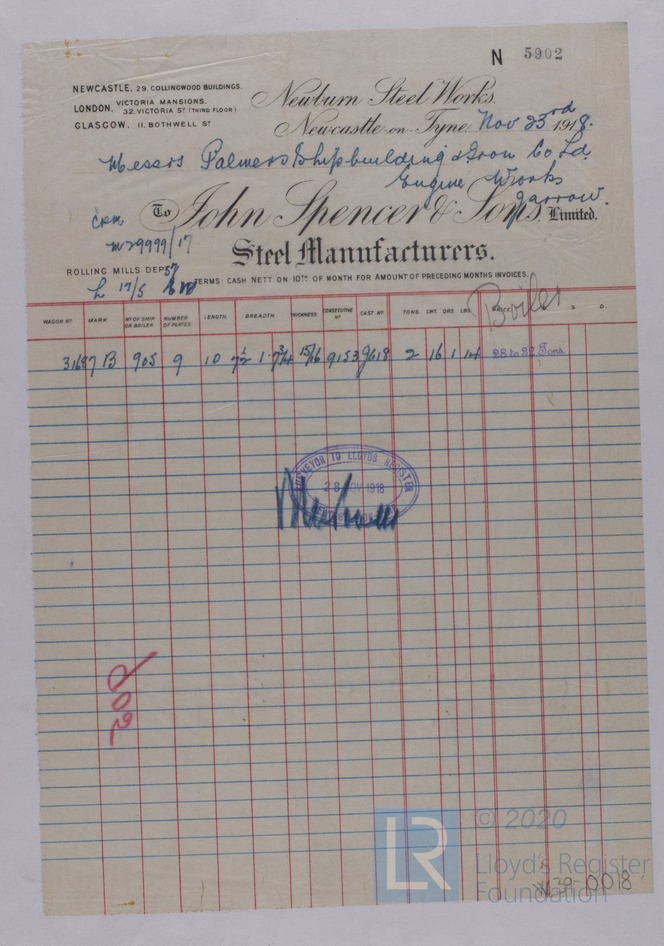 N 5902
NEWCASTLE, 29, COLLINGWOOD BUILDINGS.
LONDON, VICTORIA MANSIONS, 32, VICTORIA ST (THIRD FLOOR)
GLASGOW, 11, BOTHWELL ST
Newburn Steel Works.
Newcastle-on-Tyne, Nov 23rd 1918.
Messrs Palmers Shipbuilding & Iron Co Ld.
Engine Works
Jarrow.
To John Spencer & Sons, Limited.
M29999/17
Steel Manufacturers.
ROLLING MILLS DEPT
TERMS: CASH NETT ON 10TH OF MONTH FOR AMOUNT OF PRECEDING MONTHS INVOICES.
L 17/5
Boiler
WAGON No. MARK. No OF SHIP OR BOILER NUMBER OF PLATES LENGTH. BREADTH. THICKNESS. CONSECUTIVE No CAST No TONS. CWT. QRS LBS. S. D.
31687 B 905 9 10 7½ 1·7¾ 15/16 9153 9618 2 16 1 14 28 to 32 Tons
SURVEYOR TO LLOYDS REGISTER
28 NOV 1918
902
LR
© 2020
Lloyd's Register
Foundation
W39-0018